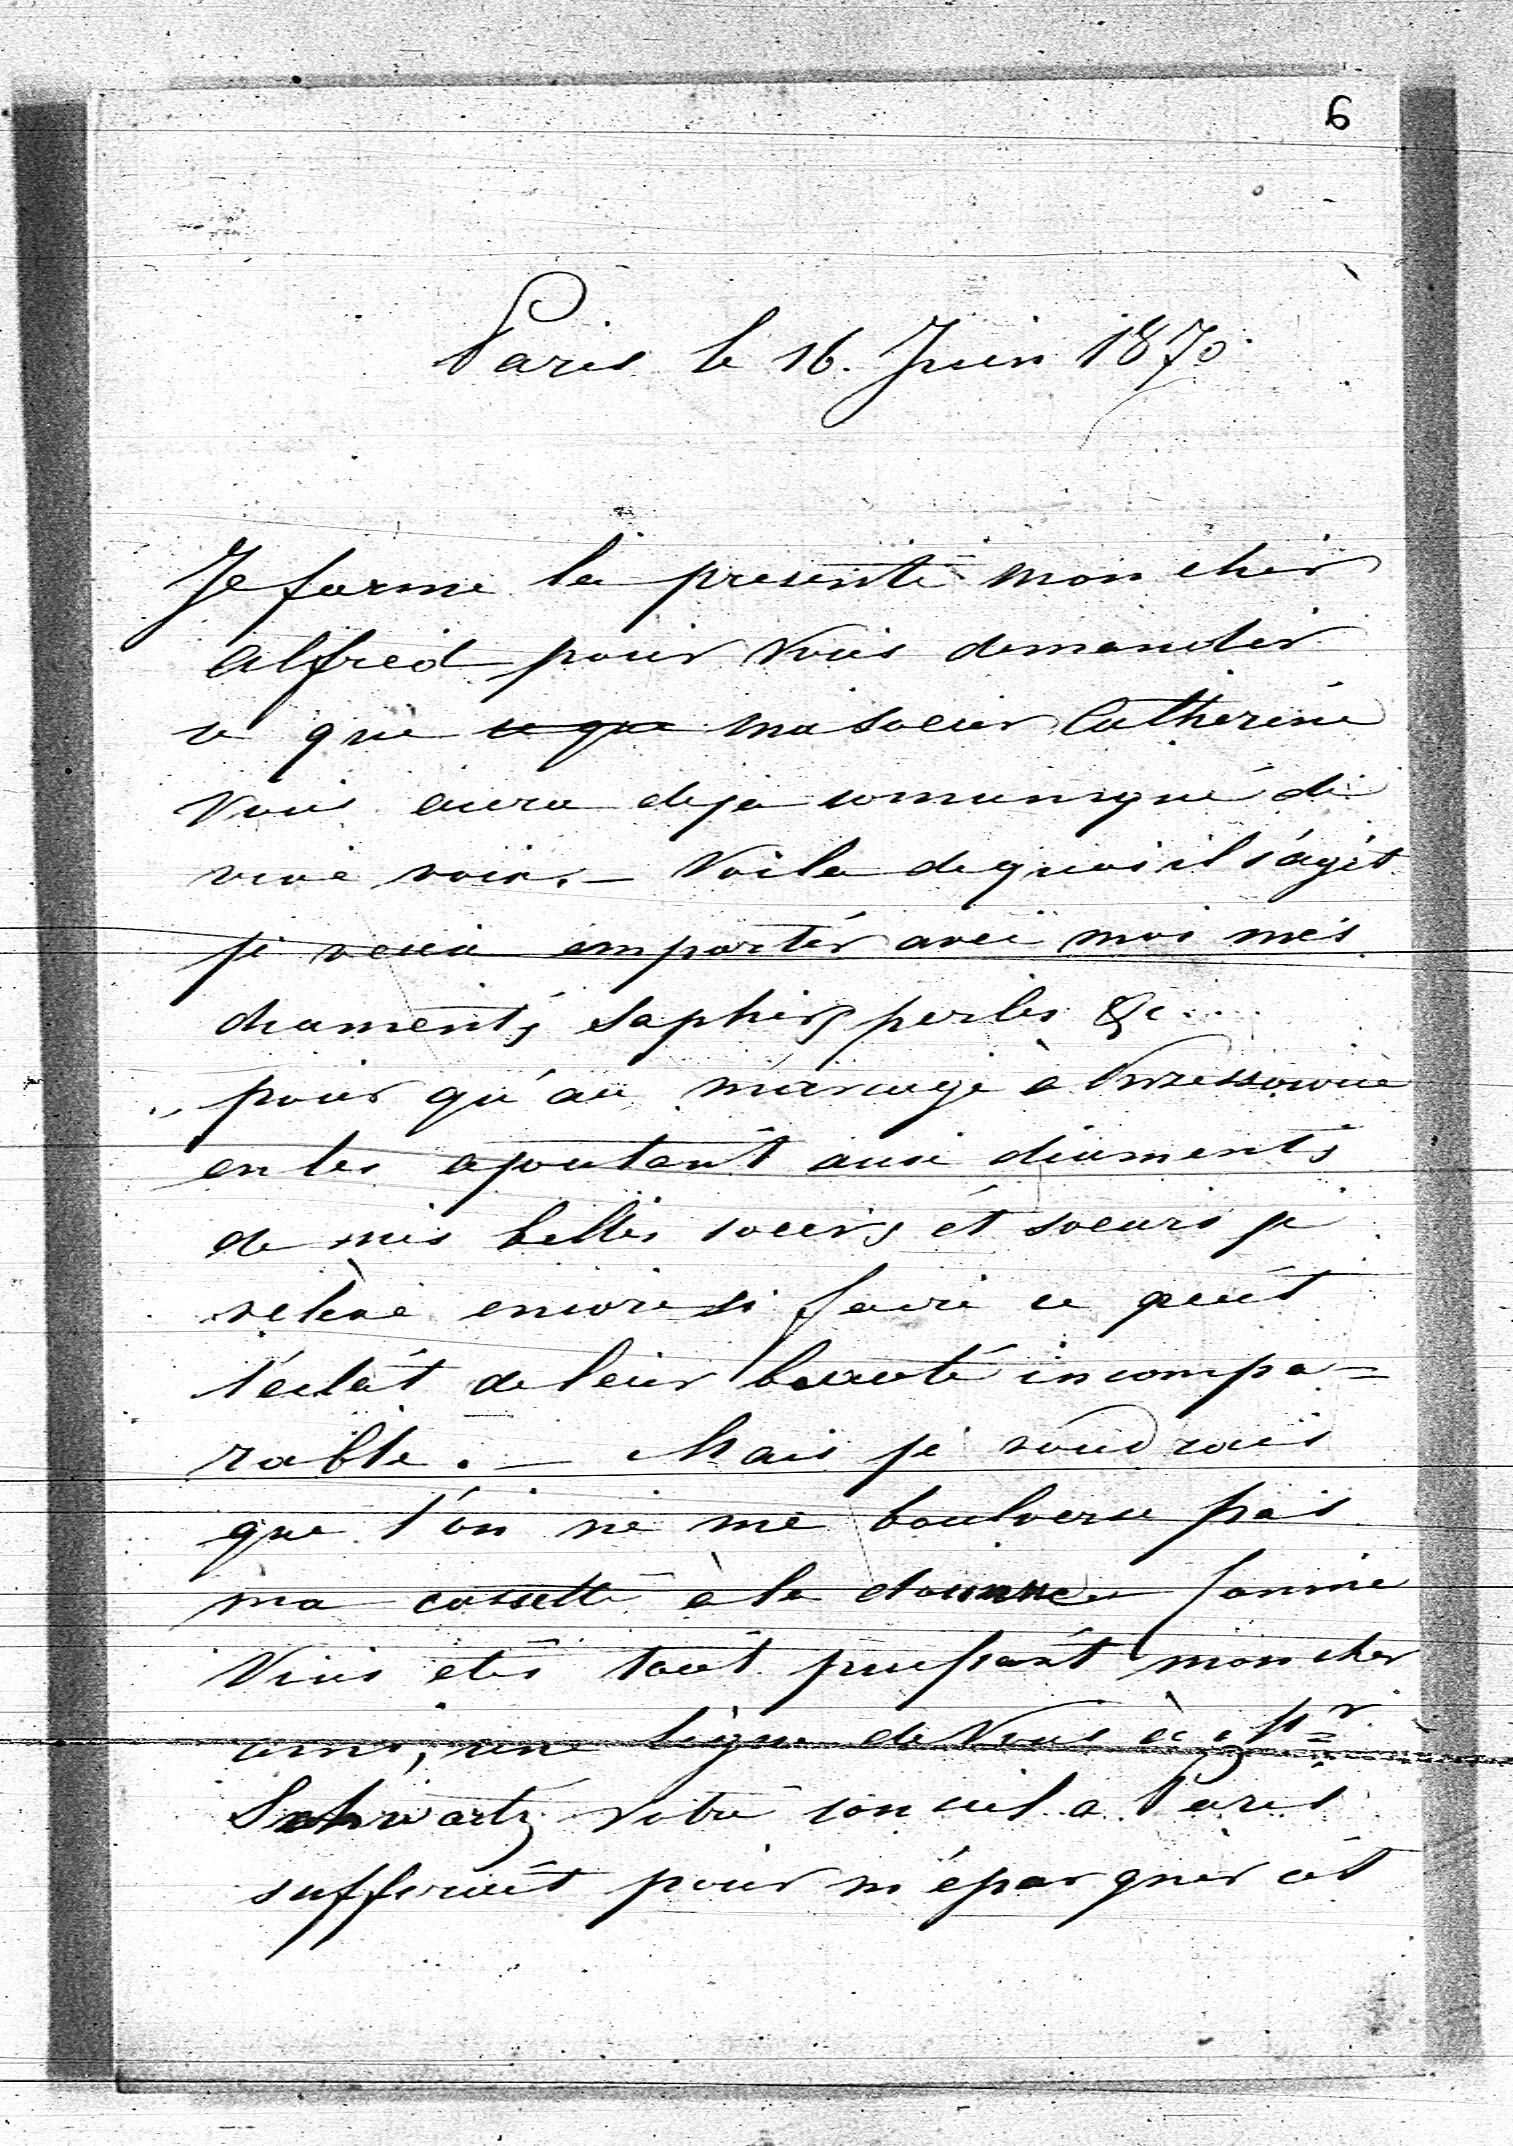 6
Paris le 16. Juin 1870.
Je forme la presente mon cher
Alfred pour Vous demander
ce que ce que ma soeur Catherine
Vous aura deja comunique de
vive voix. – Voila de quoi il s'agit
je veux emporter avec moi mes
diaments saphirs perles &c...
pour qu'au mariage à
en les ajoutant aux diaments
de mes belles soeurs et soeurs je
relève encore si faire ce peut
l'eclat de leur beauté incompa=
rable. – Mais je voudrais
que l'on ne me boulverse pas
ma cassette à la douane
Vous etes tout puissant mon cher
ami, une ligne de Vous à Mr
Schwartz votre consul a Paris
suffirait pour m'épargner cet